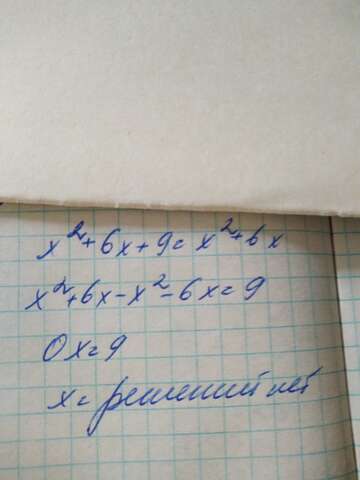 x²+6x+9=x²+6x
x²+6x-x²-6x=9
0x=9
x= решений нет